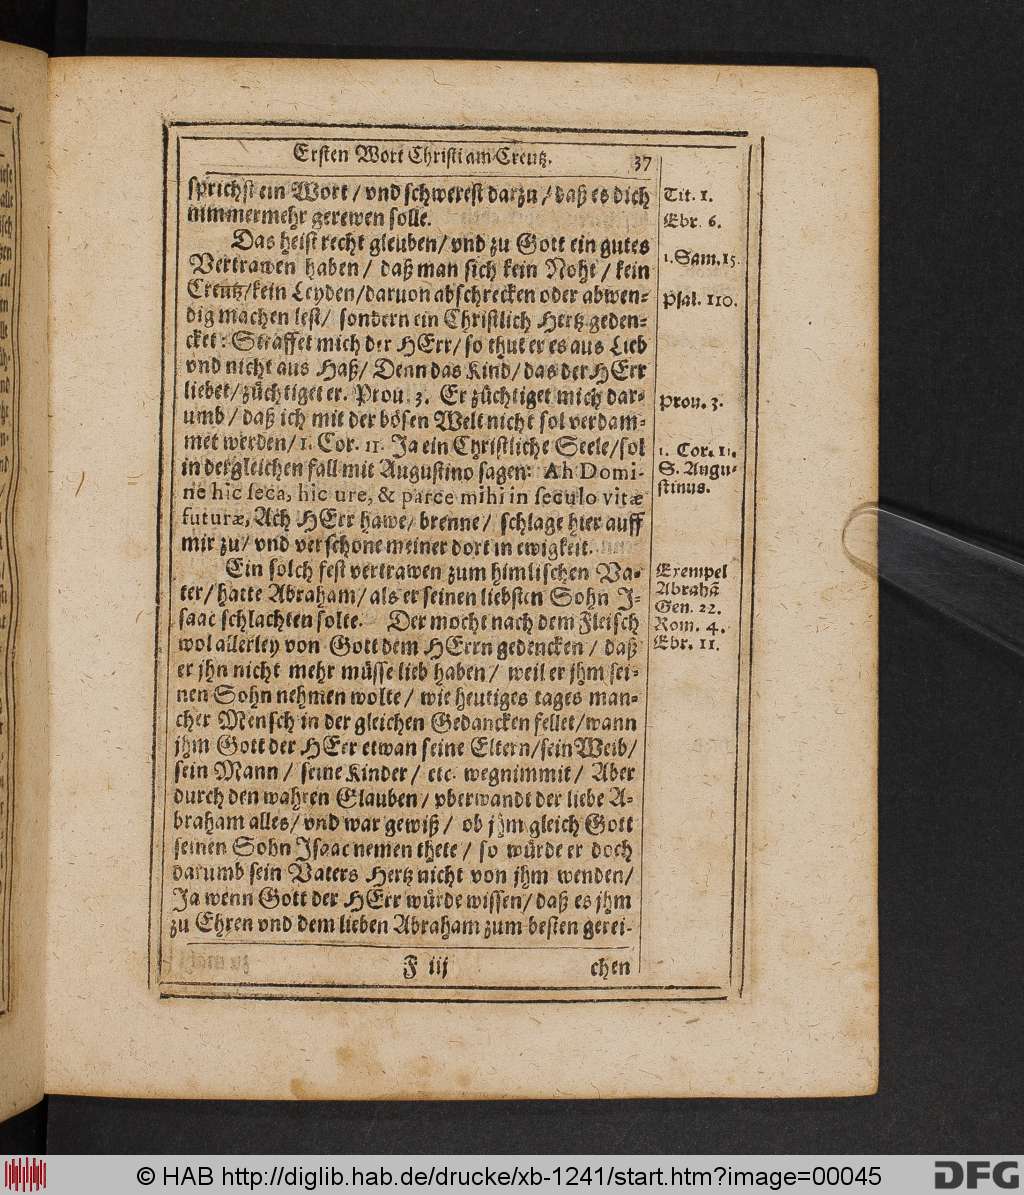 Ersten Wort Christi am Creutz. 37
sprichst ein Wort / vnd schwerest darzu / daß es dich
nimmermehr gerewen solle.
Das heist recht gleuben / vnd zu Gott ein gutes
Vertrawen haben / daß man sich kein Noht / kein
Creutz / kein Leyden / daruon abschrecken oder abwen-
dig machen lest / sondern ein Christlich Hertz geden-
cket: Straffet mich der HErr / so thut er es aus Lieb
vnd nicht aus Haß / Denn das Kind / das der HErr
liebet / züchtiget er. Prou. 3. Er züchtiget mich dar-
umb / daß ich mit der bösen Welt nicht sol verdam-
met werden / 1. Cor. 11. Ja ein Christliche Seele / sol
in dergleichen fall mit Augustino sagen: Ah Domi-
ne hic seca, hic ure, & parce mihi in seculo vitæ
futuræ, Ach HErr hawe / brenne / schlage hier auff
mir zu / vnd verschone meiner dort in ewigkeit.
Ein solch fest vertrawen zum himlischen Va-
ter / hatte Abraham / als er seinen liebsten Sohn I-
saac schlachten solte. Der mocht nach dem Fleisch
wol allerley von Gott dem HErrn gedencken / daß
er jhn nicht mehr müsse lieb haben / weil er jhm sei-
nen Sohn nehmen wolte / wie heutiges tages man-
cher Mensch in der gleichen Gedancken fellet / wann
jhm Gott der HErr etwan seine Eltern / sein Weib /
sein Mann / seine Kinder / etc. wegnimmit / Aber
durch den wahren Glauben / vberwandt der liebe A-
braham alles / vnd war gewiß / ob jhm gleich Gott
seinen Sohn Isaac nemen thete / so würde er doch
darumb sein Vaters Hertz nicht von jhm wenden /
Ja wenn Gott der HErr würde wissen / daß es jhm
zu Ehren vnd dem lieben Abraham zum besten gerei-
F iij chen
Tit. 1.
Ebr. 6.
1. Sam. 15.
Psal. 110.
Prou. 3.
1. Cor. 11.
S. Augu-
stinus.
Exempel
Abrahã
Gen. 22.
Rom. 4.
Ebr. 11.
© HAB http://diglib.hab.de/drucke/xb-1241/start.htm?image=00045
DFG